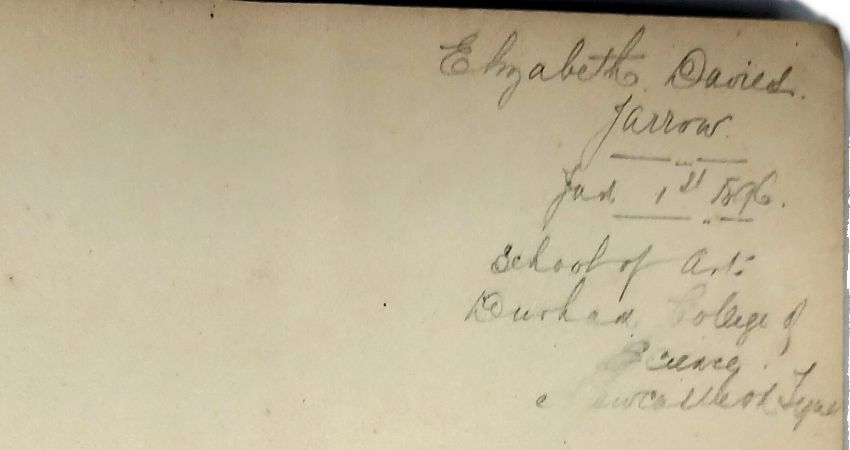 Elizabeth Davies.
Jarrow.
Jan 1st 1896.
School of Art
Durham College of
Science
Newcastle on Tyne